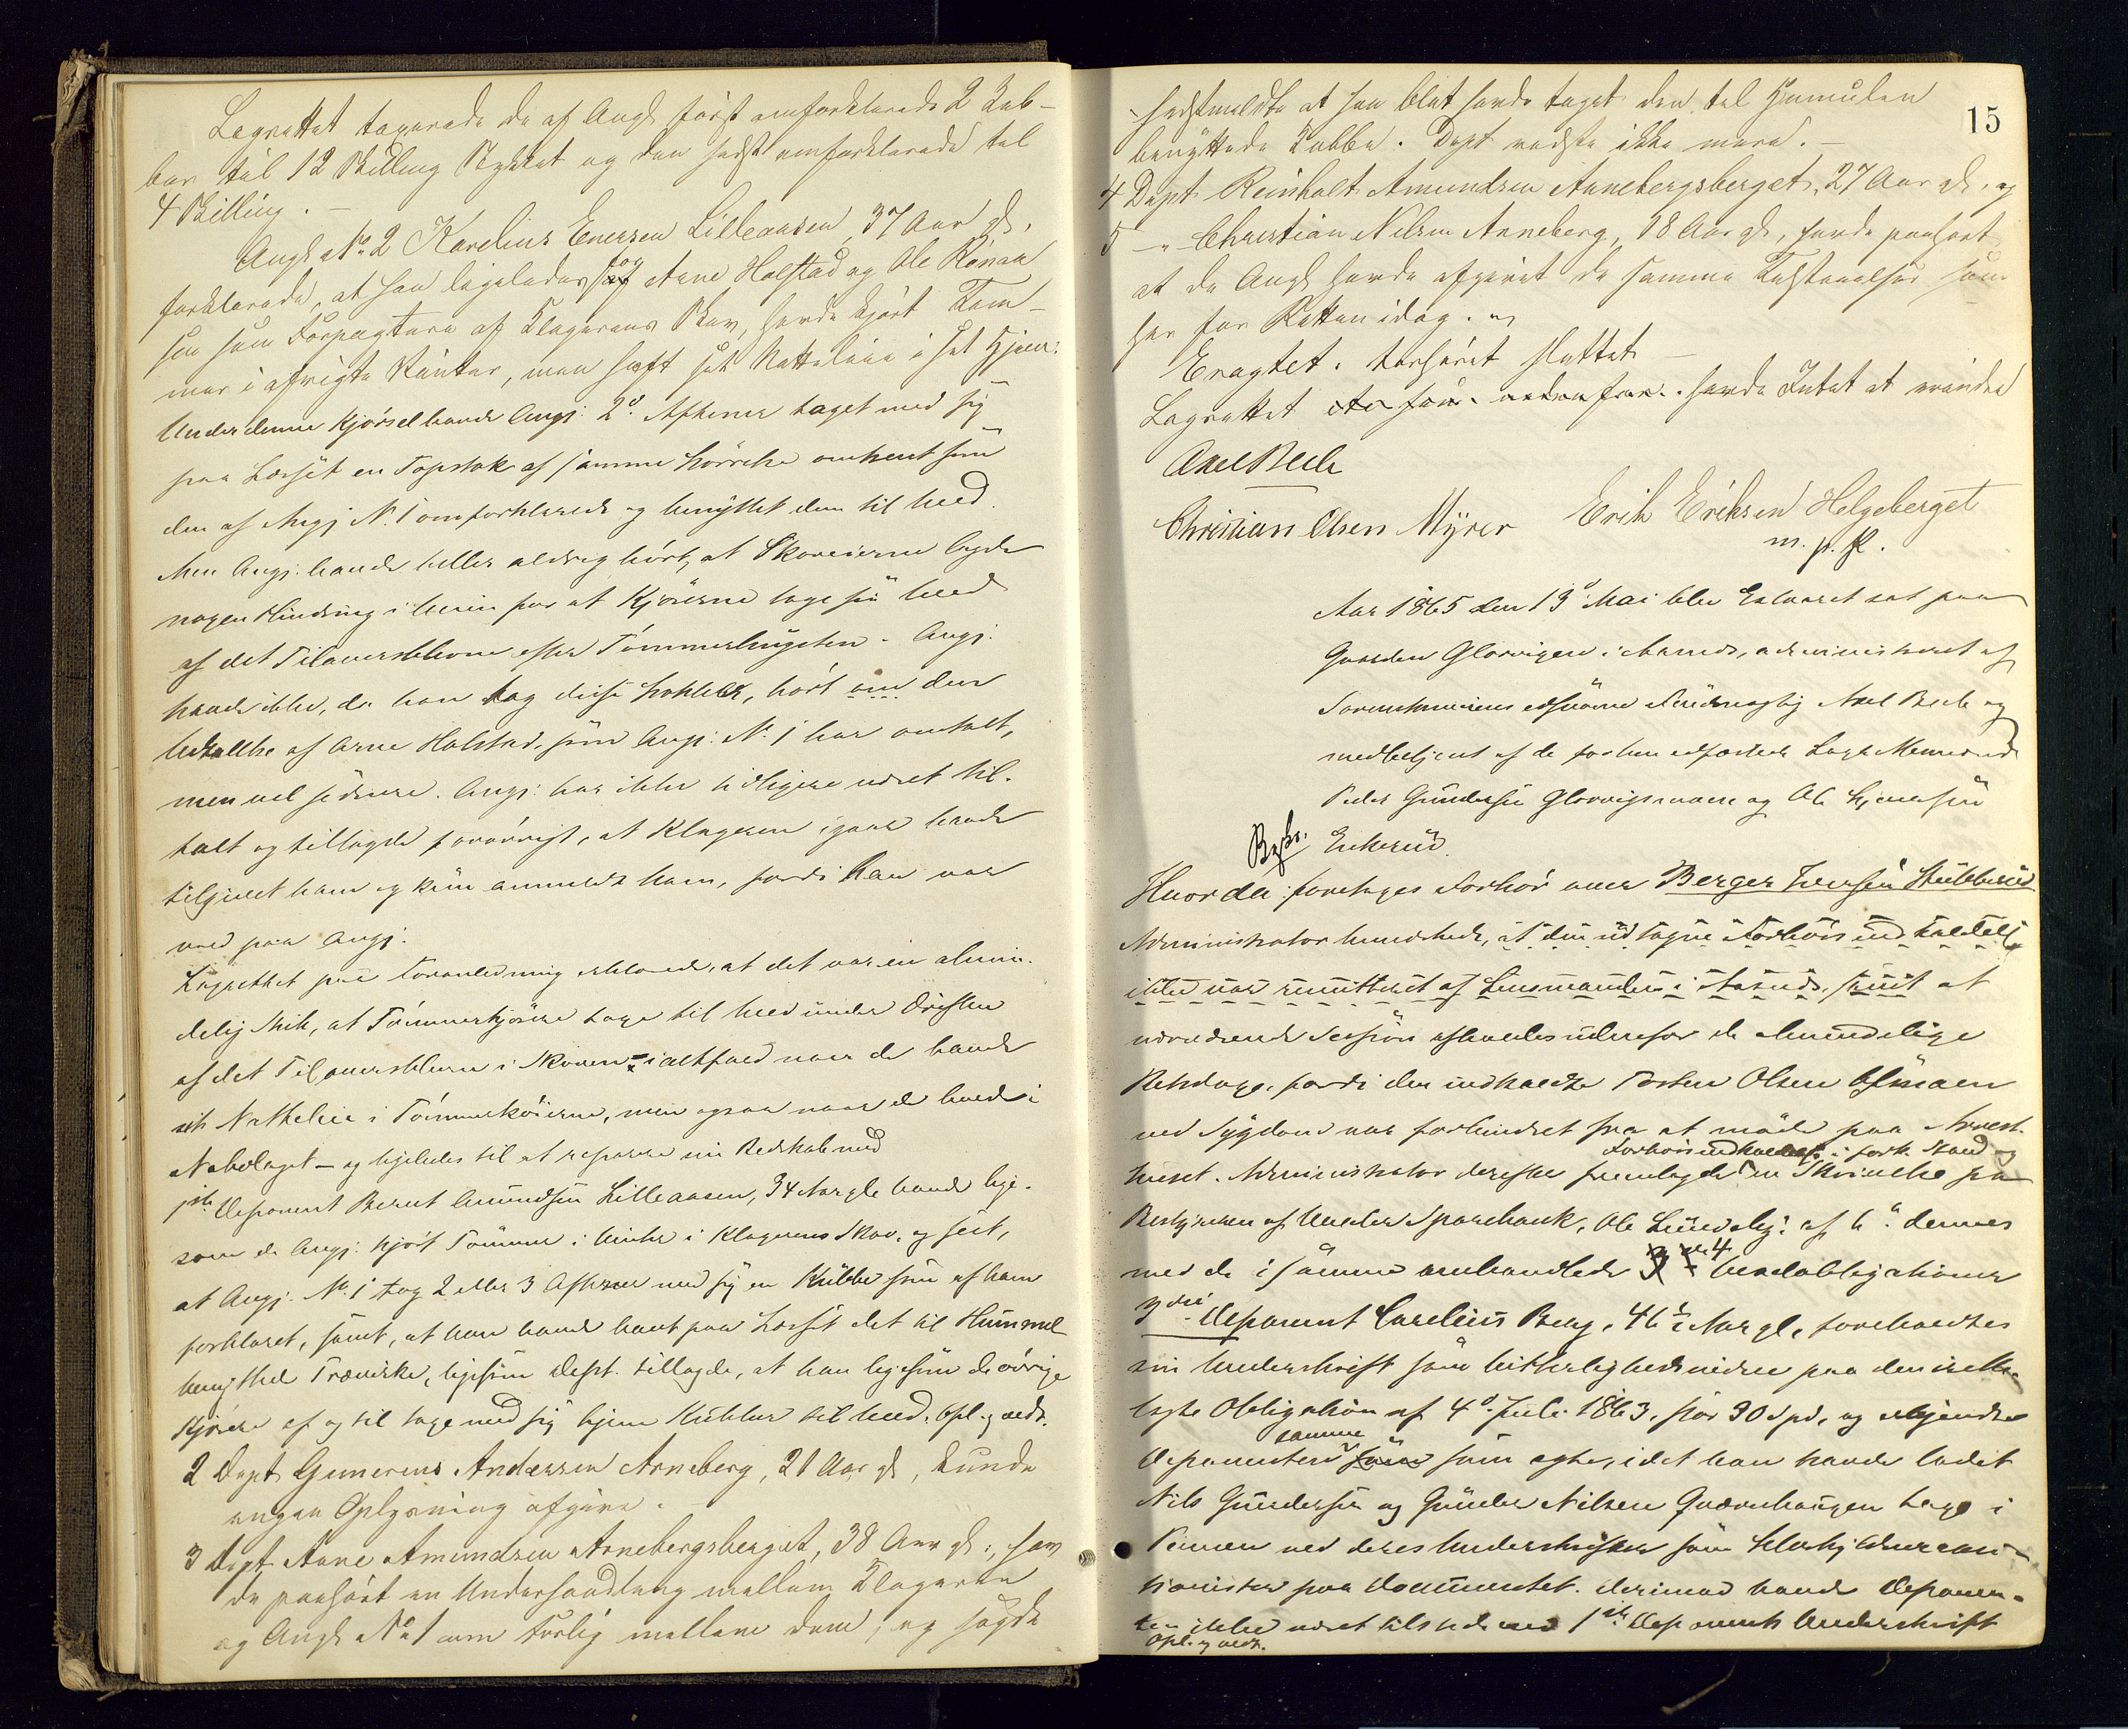 Lagrettet taxerede de af Angj. først omforklarede 2 Kub-
ber til 12 Skilling Stykket og den sidst omforklarede til
4 Skilling. -
Angj. No 2 Karelius Enersen Lilleaasen, 37 Aar gl.
forklarede, at han ligeledes hos Arne Holstad og Ole Rönaa
sen som Forpagtere af Klagerens Skov, havde kjørt Töm-
mer i afvigte Vinter, men haft sit Natteleie i sit Hjem.
Under denne Kjørsel havde Angj. 2de Aftener taget med sig
paa Læsset en Topstok af samme Størrelse omtrent som
den af Angj. No 1 omforklarede og benyttet den til Ved.
Men Angj. havde heller aldrig hørt, at Skoveierne lagde
nogen Hindring i Veien for at Kjørerne toge sig Ved
af det Tiloversblevne efter Tömmerhugsten. Angj.
havde ikke, da han tog disse Stokker, hørt om den
Udtalelse af Arne Holstad, som Angj. No 1 har omtalt,
men vel sidenere. Angj. har ikke tidligere været til-
talt og tillagde forøvrigt, at Klageren igaar havde
tilgivet ham og kun anmeldt ham, fordi han var
vred paa Angj.
Lagrettet paa Foranledning erklærede, at det var en almin-
delig Skik, at Tømmerkjørere toge til Ved under Driften
af det Tiloversblevne i Skoven - ialtfald naar de havde
sit Natteleie i Tømmerkoierne, men ogsaa naar de havde i
Nabolaget - og ligeledes til at reparere sin Redskab med
1ste Deponent Bernt Amundsen Lilleaasen, 34 Aar gl. havde lige-
som de Angj. kjørt Tømmer i Vinter i Klagerens Skov, og seet,
at Angj. No 1 tog 2 eller 3 Aftener med sig en Kubbe som af ham
forklaret, samt, at han havde havt paa Læsset det til Hummel
benyttede Træstykke, ligesom Dept. tillagde, at han ligesom de øvrige
Kjørere af og til toge med sig hjem Kubber til Ved. Opl. og vedt.
2 Dept. Gunerius Andersen Arneberg, 21 Aar gl., kunde
ingen Oplysning afgive.
3 Dept. Arne Amundsen Arnebergsberget, 38 Aar gl., hav
de paahørt en Underhandling mellem Klageren
og Angj. No 1 om Forlig mellem dem, og sagde
15
sidstmeldte at han blot havde taget den til Humulen
benyttede Kubbe. Dept vidste ikke mere. -
4 Dept. Reinholt Amundsen Arnebergsberget, 27 Aar gl. og
5 - " - Christian Nilsen Arneberg, 18 Aar gl., havde paahørt
at de Angj. havde afgivet de samme Tilstaaelser som
her for Retten idag.
Eragtet. Forhøret sluttet -
Lagrettet havde Intet at erindre
Axel Bech
Christian Olsen Myrer Erik Eriksen Helgeberget
m. p. P.
Aar 1865 den 13de Mai blev Extraret sat paa
Gaarden Glorvigen i Aasnes, administreret af
Sorenskriverens edsvorne Fuldmægtig Axel Bech og
medbetjent af de forhen edfæstede LagretteMænd
Peder Gundersen Glorvigsmoen og Ole
Enkerud.
Hvor da foretages Forhør over Berger Iversen Stubberud
Administrator bemærkede, at den udtagne Forhørsindkaldelse
ikke var remitteret af Lensmanden i Aasnes, samt at
nærværende Session afholdes udenfor de almindelige
Retsdage, fordi den indkaldte Torsten Olsen
ved Sygdom var forhindret fra at møde paa Arrest-
huset. Administrator derefter fremlagde Forhørsindkaldelse i fork. Stand og en Skrivelse fra
Bestyrelsen af Sparebank, Ole af 6te dennes
med de i samme omhandlede 4 Vexelobligationer
3die Deponent Carelius Berg, 46 Aar gl. foreholdtes
sin Underskrift som Vitterlighedsvidne paa den irette-
lagte Obligation af 4de Juli 1863, stor 30 Spd. og erkjendte
Deponenten samme som ægte, idet han havde ladet
Nils Gundersen og Gunder Nilsen Qværnhaugen tage i
Pennen ved deres Underskrifter som Selvskyldnercau-
tionister paa Documentet. Derimod havde Deponen-
ten ikke været tilstede ved 1ste Deponents Underskrift
Opl. og vedt.